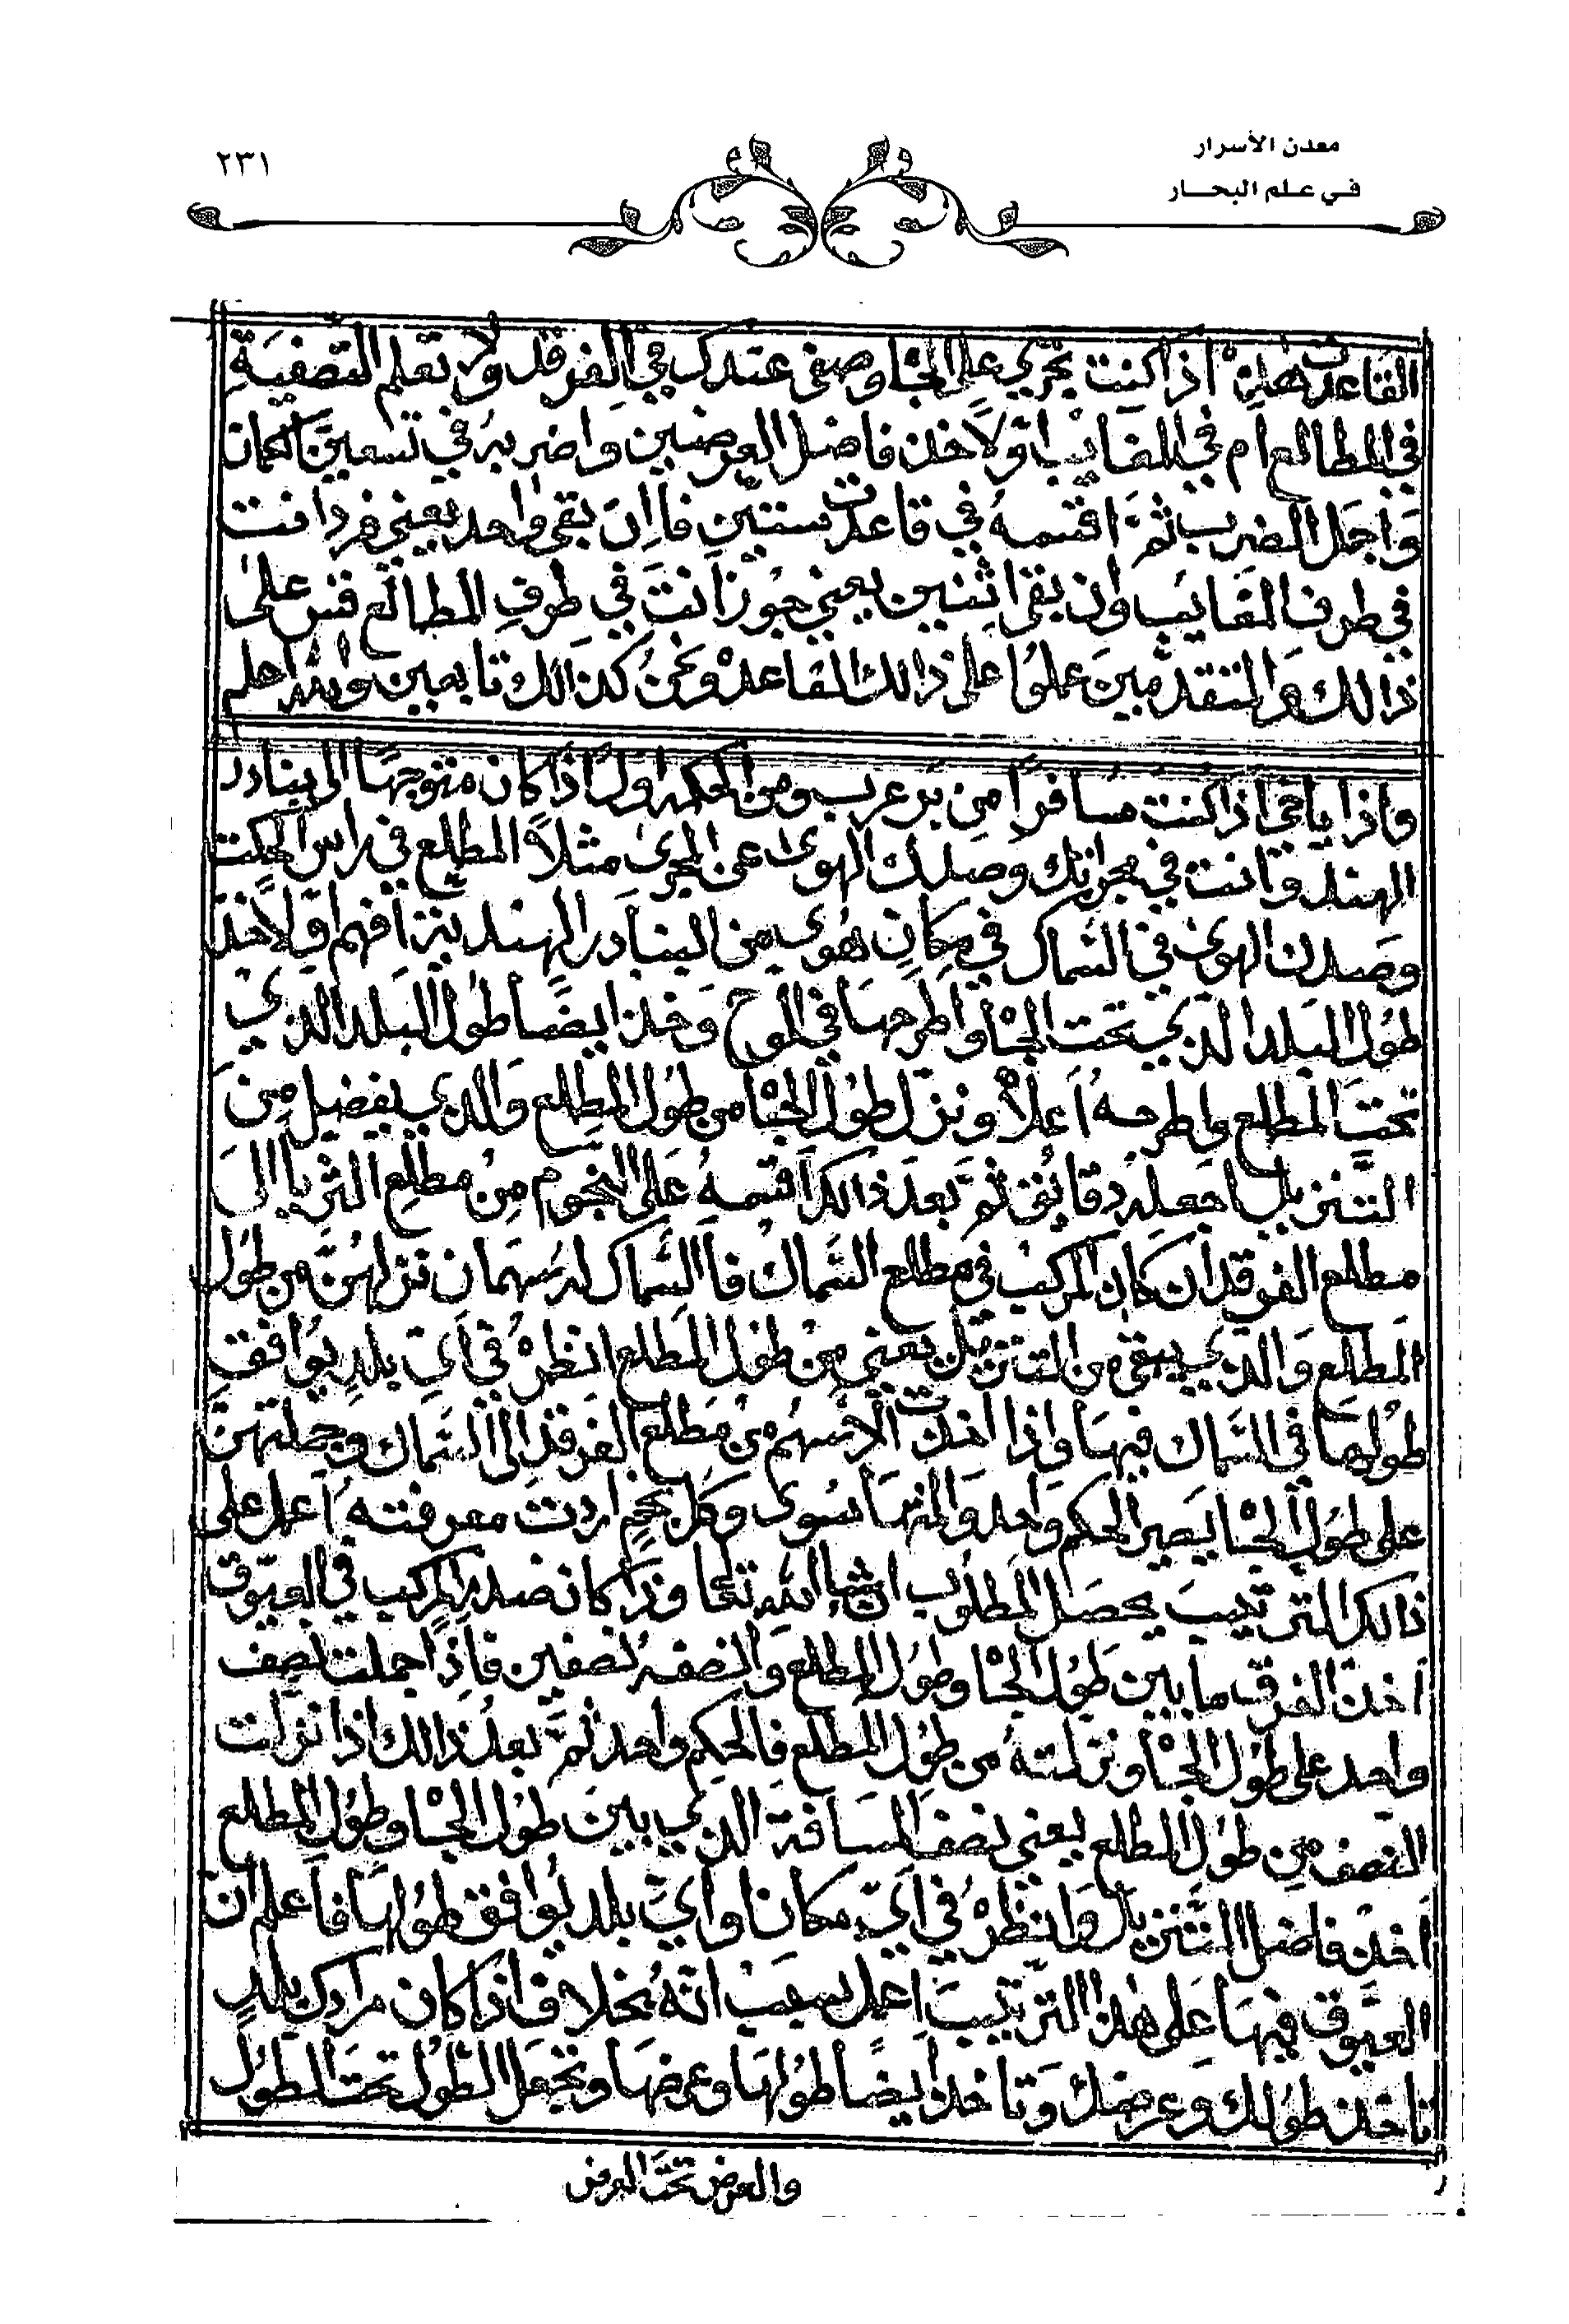 معدن الأسرار
في علم البحار
٢٣١
القاعدت هذه اذا كنت تجري على الجاه وصفى عندك في الفرقد ولا تعلم التصفية
في المطالع ام في المغايب اولا خذ فاضل العرضين واضربه في تسعين الكمان
واجمل الضرب ثم اقتسمه في قاعدت ستين فاان بقى واحد يعني فرد انت
في طرف المغايب وان بقى اثنين يعني جوز انت في طرف المطالع قس على
ذالك والمتقدمين عملوا على ذالك القاعده ونحن كذالك تابعين والله اعلم
واذا يااخي اذا كنت مسافراً من بر عرب ومن الحكمه اولاً اذا كان متوجهاً الى بنادر
الهند وانت في مجراتك وصدك الهوى عن المجرى مثلاً المطلع في راس
وصدك الهوى في السماك في مكان هوى من البنادر الهندية افهم اولاً خذ
طول البلد الذي تحت الجاه واطرحها في اللوح وخذ ايضاً طول البلد الذي
تحت المطلع واطرحه اعلا ونزل طول الجاه من طول المطلع والذي يفضل من
التنزيل اجعله دقايق ثم بعد ذالك اقتمه على النجوم من مطلع الثريا الى
مطلع الفرقد ان كان المركب في مطلع السماك فاالسماك له سهمان نزلهن من طول
المطلع والذي يبقى من التنزيل يعني من طول المطلع انظره في اي بلد يوافق
طولها في السماك فيها واذا اخذت الاسهم من مطلع الفرقد الى السماك وجملتهن
على طول الجاه يصير الحكم واحد والمنها سوى وكل نجم اردت معرفته اعمل على
ذالك الترتيب يحصل المطلوب انشاء الله تعا وذا كان ضد المركب في العيوق
اخذ الفرق ما بين طول الجاه وطول المطلع وانصفه نصفين فاذا جملت نصف
واحد على طول الجاه ونزلته من طول المطلع فالحكم واحد ثم بعد ذالك اذا نزلت
النصف من طول المطلع يعني نصف المسافة الذي بين طول الجاه وطول المطلع
اخذ فاضل التنزيل وانظره في اي مكانا واي بلد يوافق طولها فاعلم ان
العيوق فيها على هذا الترتيب اعمل بسبب انه بخلاف اذا كان مرادك بلد
تاخذ طولك وعرضك وتاخذ ايضاً طولها وعرضها وتجعل الطول تحت الطول
والعرض تحت العرض